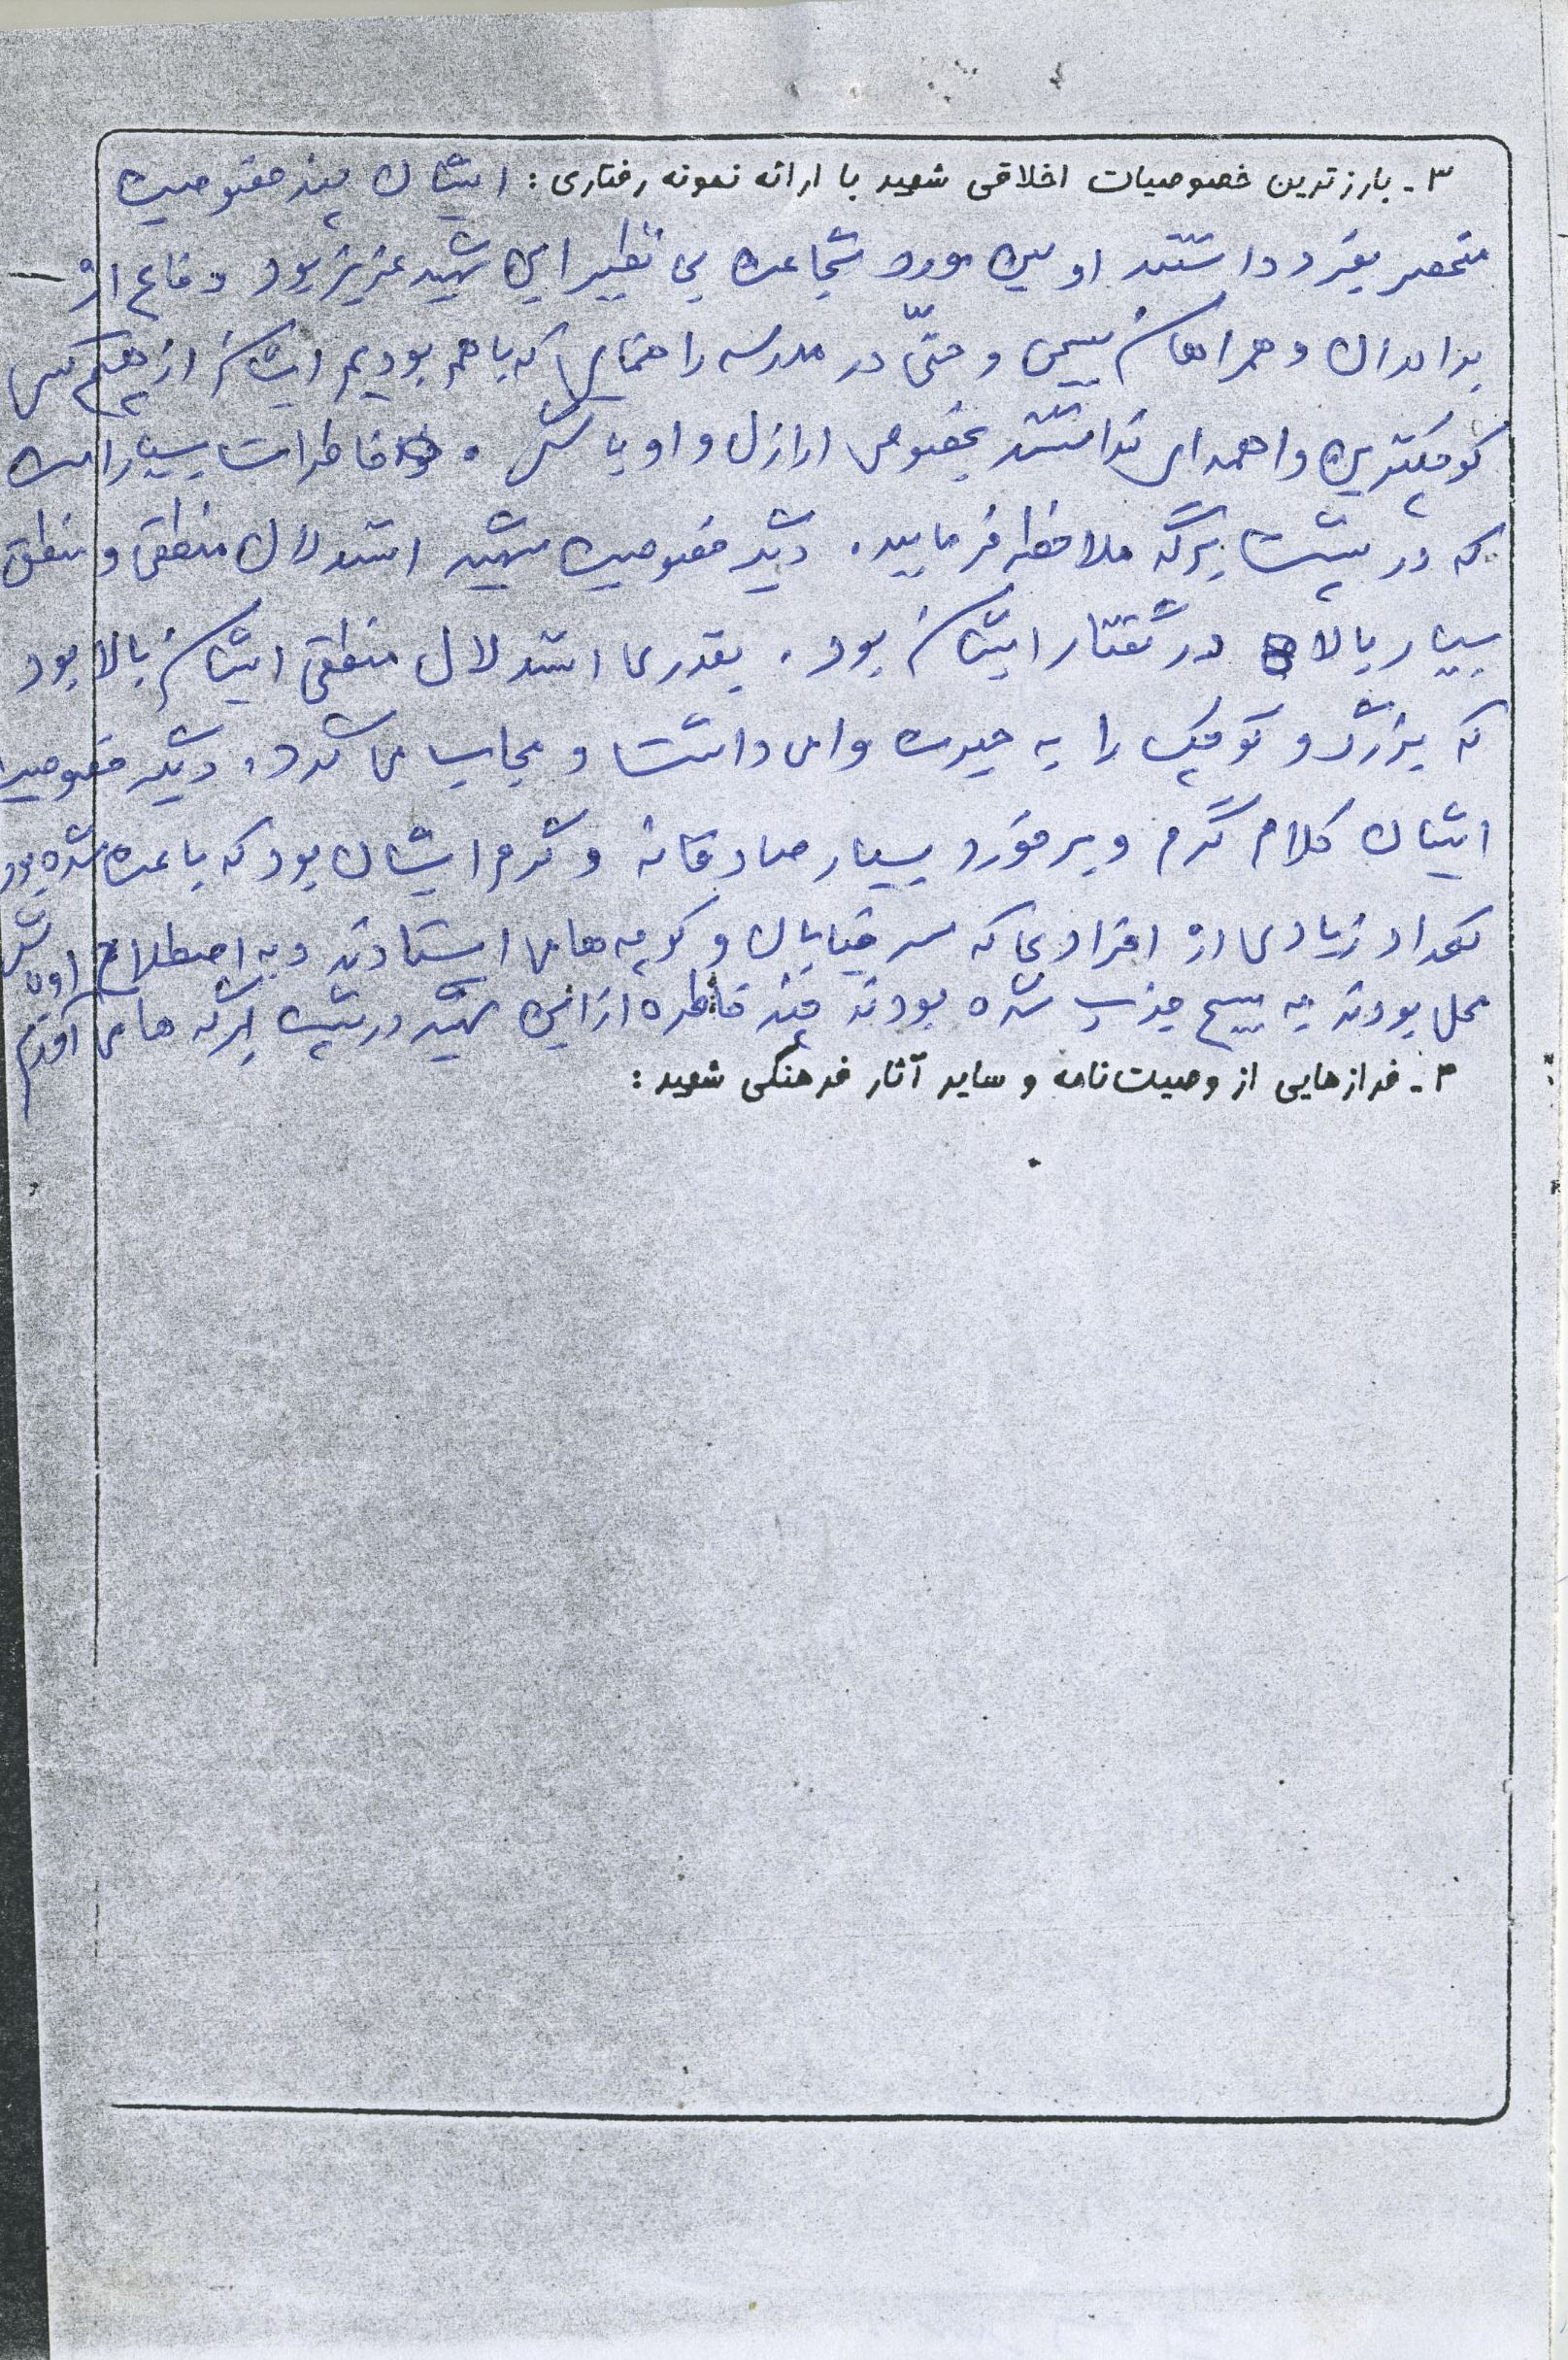 ۳ـ بارزترین خصوصیات اخلاقی شهید با ارائه نمونه رفتاری: ایشان چند خصوصیت
منحصر بفرد داشتند اولین مورد شجاعت بی نظیر این شهید عزیز بود دفاع از
برادران و همراهان بسیجی و حتّی در مدرسه راهنمایی که با هم بودیم ایشان از هیچ کس
کوچکترین واهمه ای نداشتند بخصوص اراذل و اوباش . خاطرات بسیار است
که در پشت برگه ملاحظه فرمایید . دیگر خصوصیت شهید استدلال منطقی و منطق
بسیار بالا در گفتار ایشان بود . بقدری استدلال منطقی ایشان بالا بود
که بزرگ و کوچک را به حیرت وامی داشت و مجاب می کرد . دیگر خصوصیت
ایشان کلام گرم و برخورد بسیار صادقانه و گرم ایشان بود که باعث شده بود
تعداد زیادی از افرادی که سر خیابان و کوچه ها می ایستادند و به اصطلاح اوباش
محل بودند به بسیج جذب شده بودند چند خاطره از این شهید در پشت برگه ها می آورم
۴ـ فرازهایی از وصیت‌نامه و سایر آثار فرهنگی شهید: